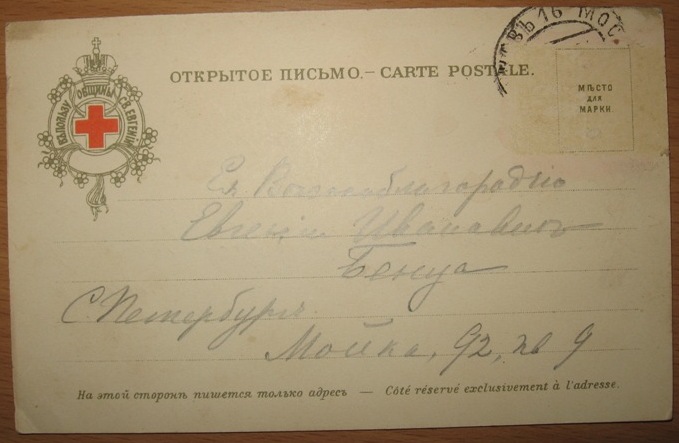 ВЪ ПОЛЬЗУ ОБЩИНЫ СВ. ЕВГЕНІИ
ОТКРЫТОЕ ПИСЬМО.— CARTE POSTALE.
16 МОС
МѢСТО
ДЛЯ
МАРКИ
Ея Высокоблагородію
Евгеніи Ивановнѣ
Бенуа
С. Петербургъ
Мойка, 92, кв 9
На этой сторонѣ пишется только адресъ — Côté réservé exclusivement à l'adresse.